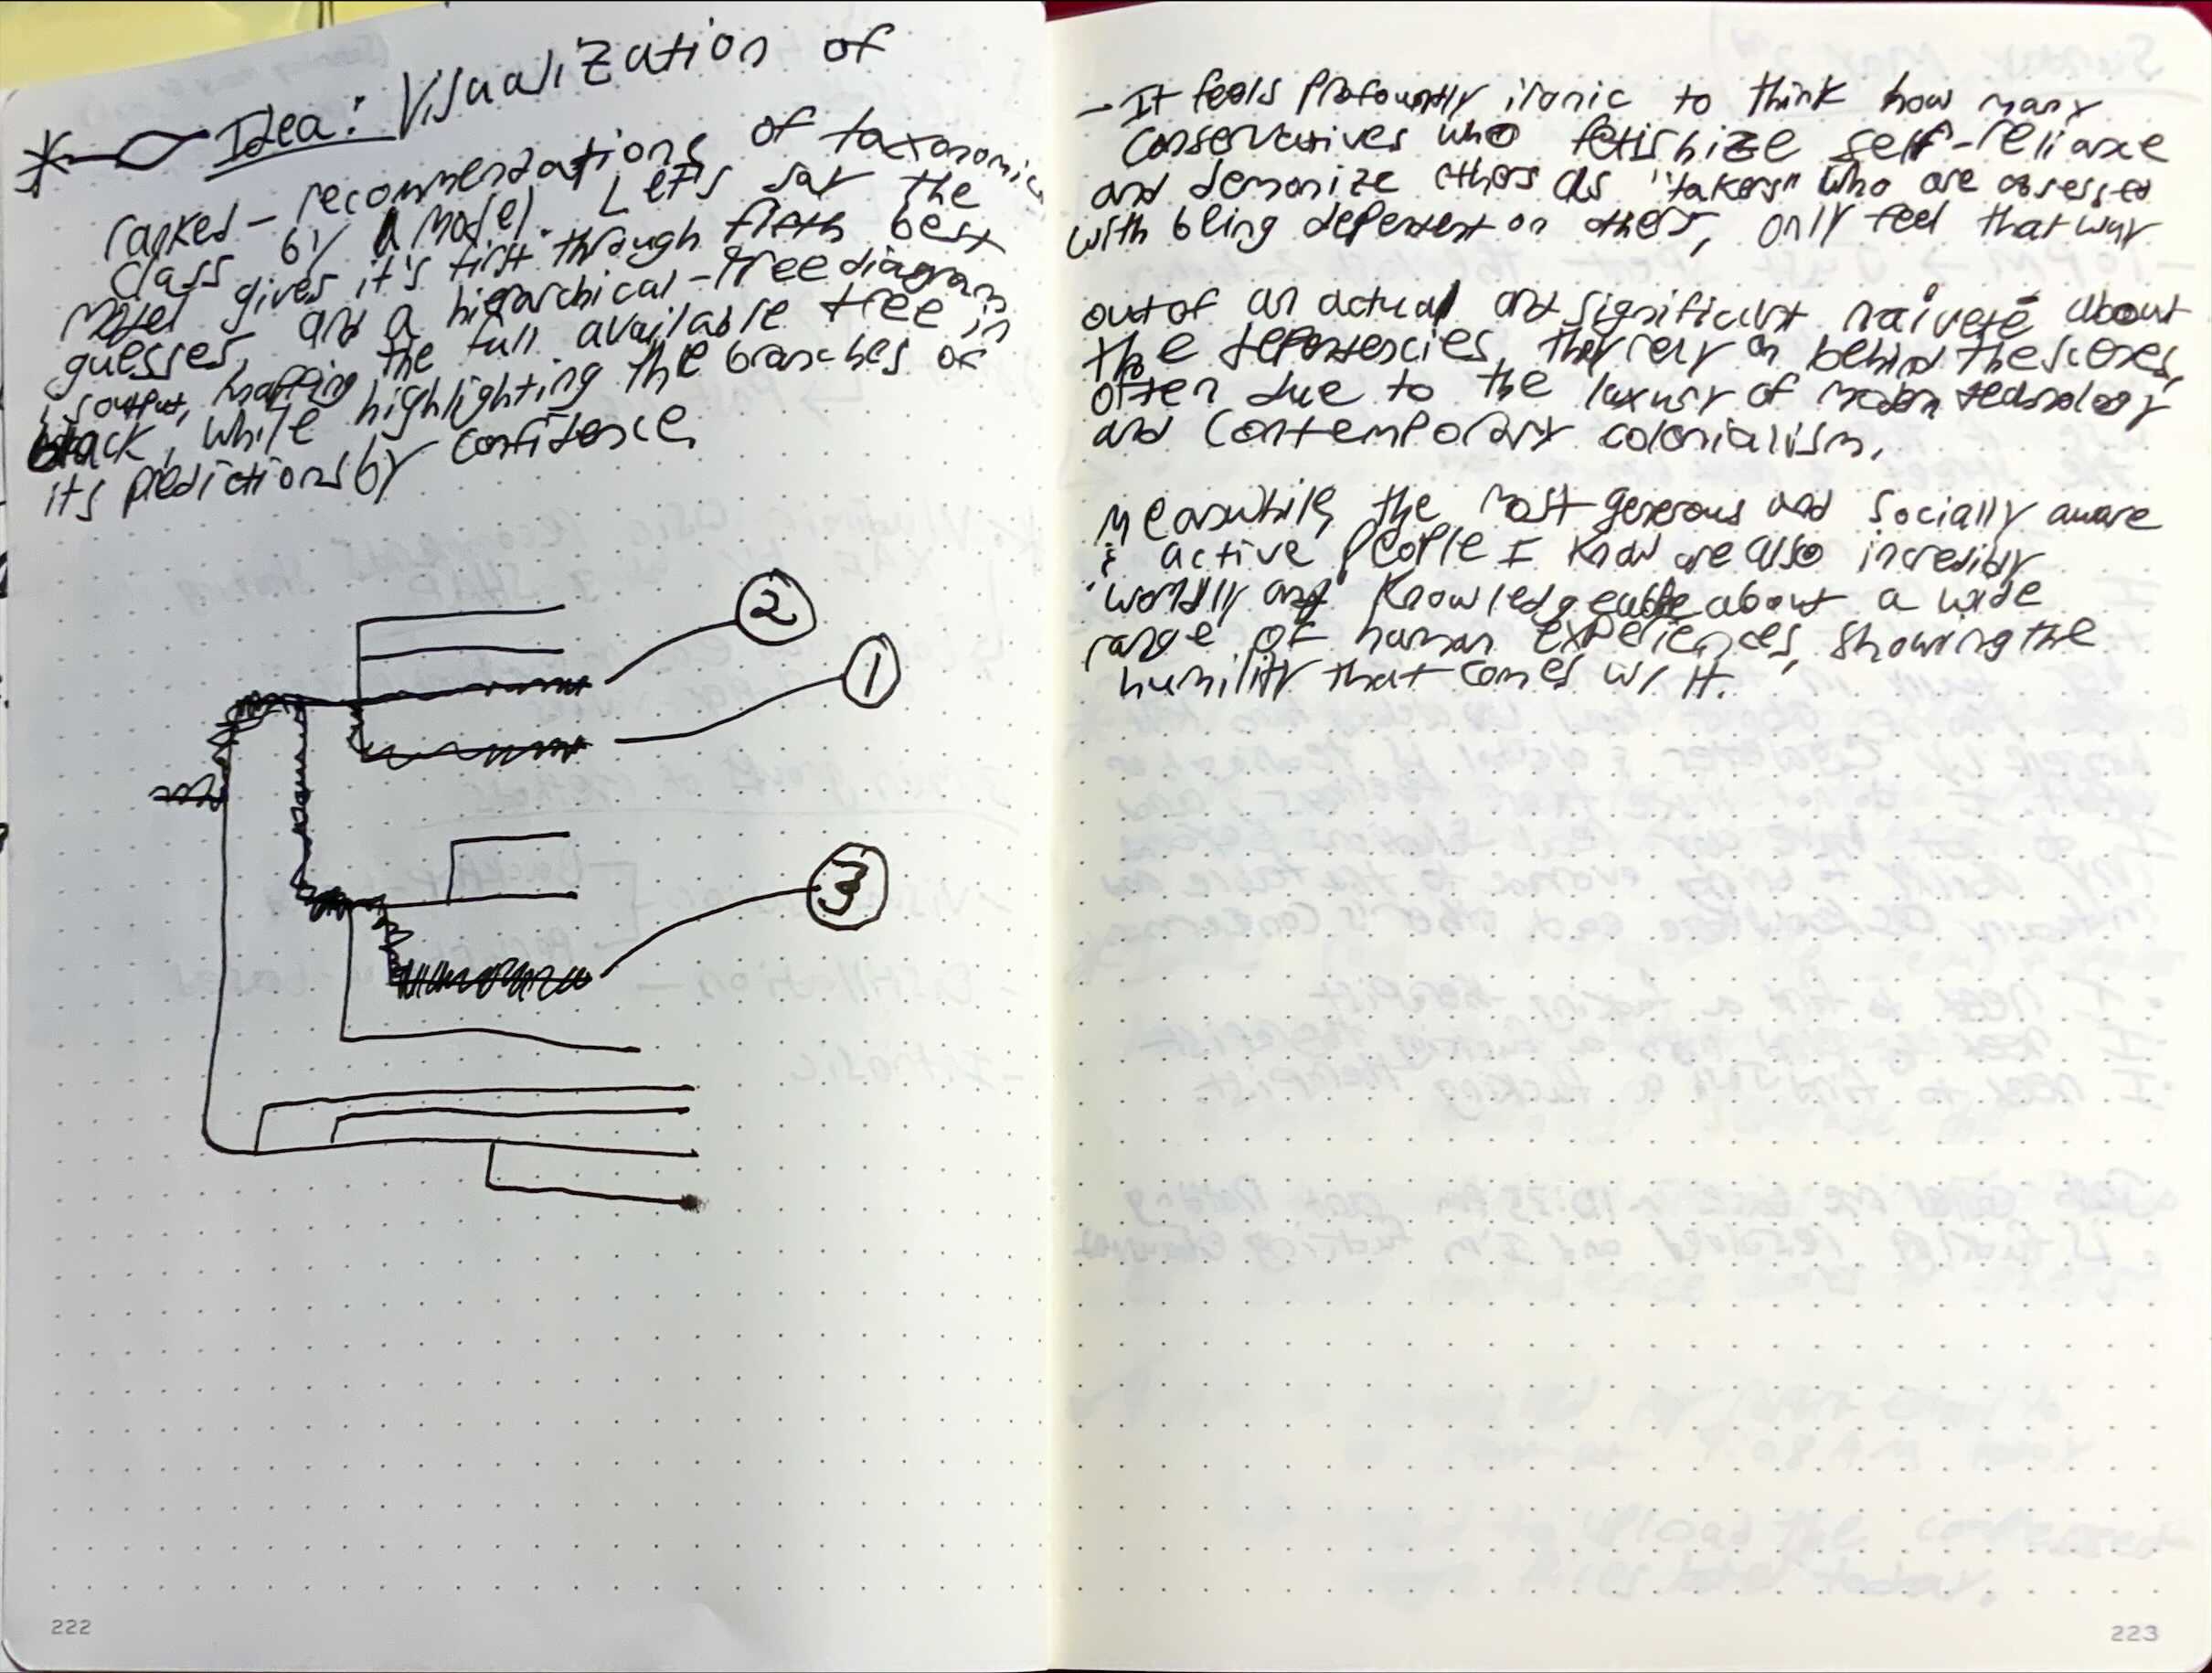 Idea: Visualization of
ranked-recommendations of taxonomic
class by a model. Let's say the
model gives it's first through fifth best
guesses, and a hierarchical-tree diagram
is output, mapping the full available tree in
black, while highlighting the branches of
its predictions by confidence.
2
1
3
222
- It feels profoundly ironic to think how many
conservatives who fetishize self-reliance
and demonize others as "takers" who are obsessed
with being dependent on others, only feel that way
out of an actual and significant naiveté about
the dependencies, they rely on behind the scenes,
often due to the luxury of modern technology
and contemporary colonialism.
Meanwhile, the most generous and socially aware
& active people I know are also incredibly
worldly and knowledgeable about a wide
range of human experiences, showing the
humility that comes w/ it.
223